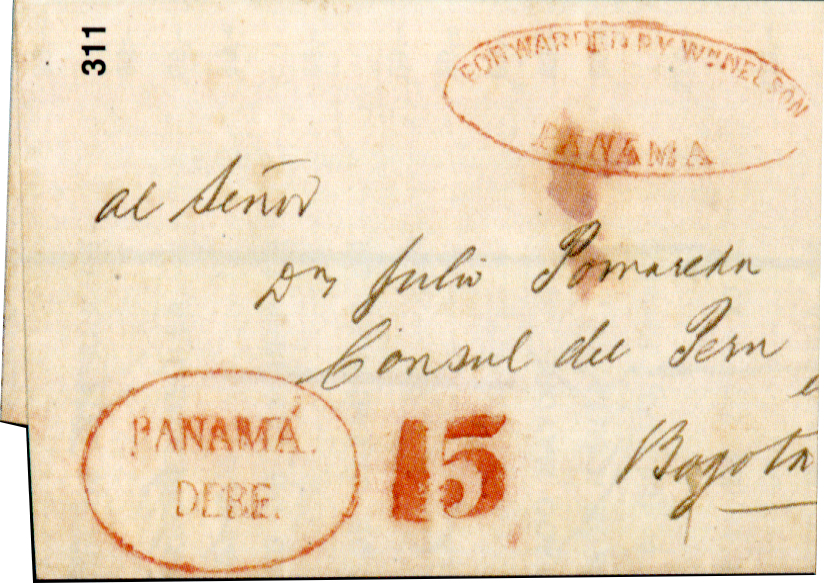 311
FORWARDED BY Wm NELSON
PANAMA
al Señor
Dn Julio Pomareda
Consul del Peru
Bogota
PANAMÁ.
DEBE.
15